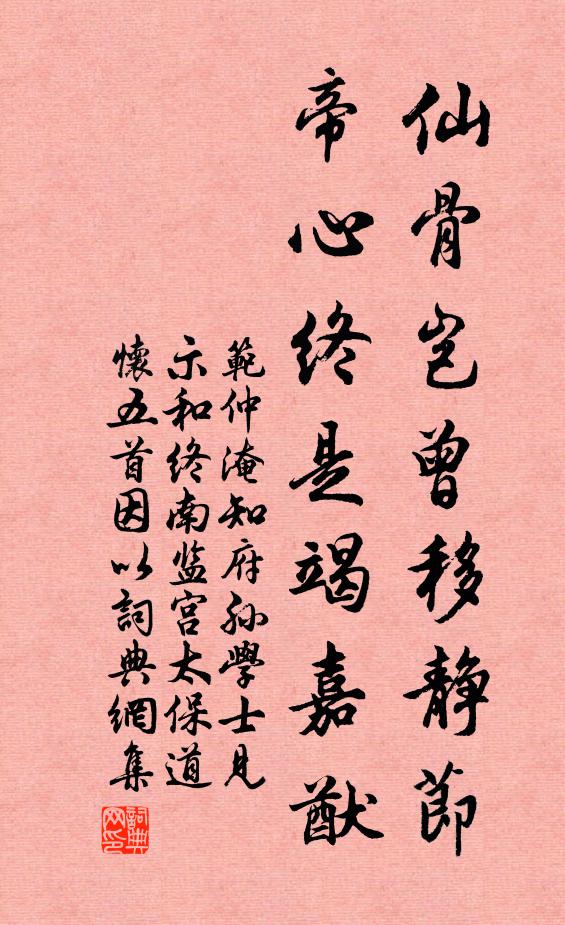 仙骨岂曾移静節
帝心终是竭嘉猷
範仲淹知府孙學士見
示和终南监宫太保道
懷五首因以詞典網集
詞典网印